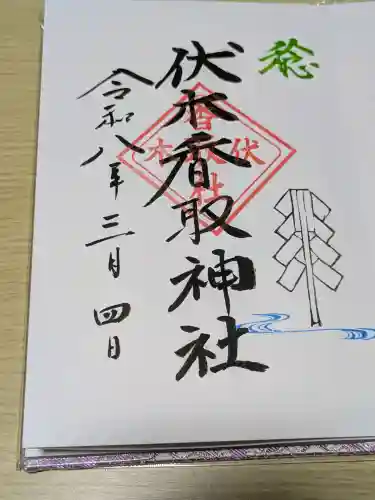 稔
伏木香取神社
香
木取伏
社
令和八年三月四日